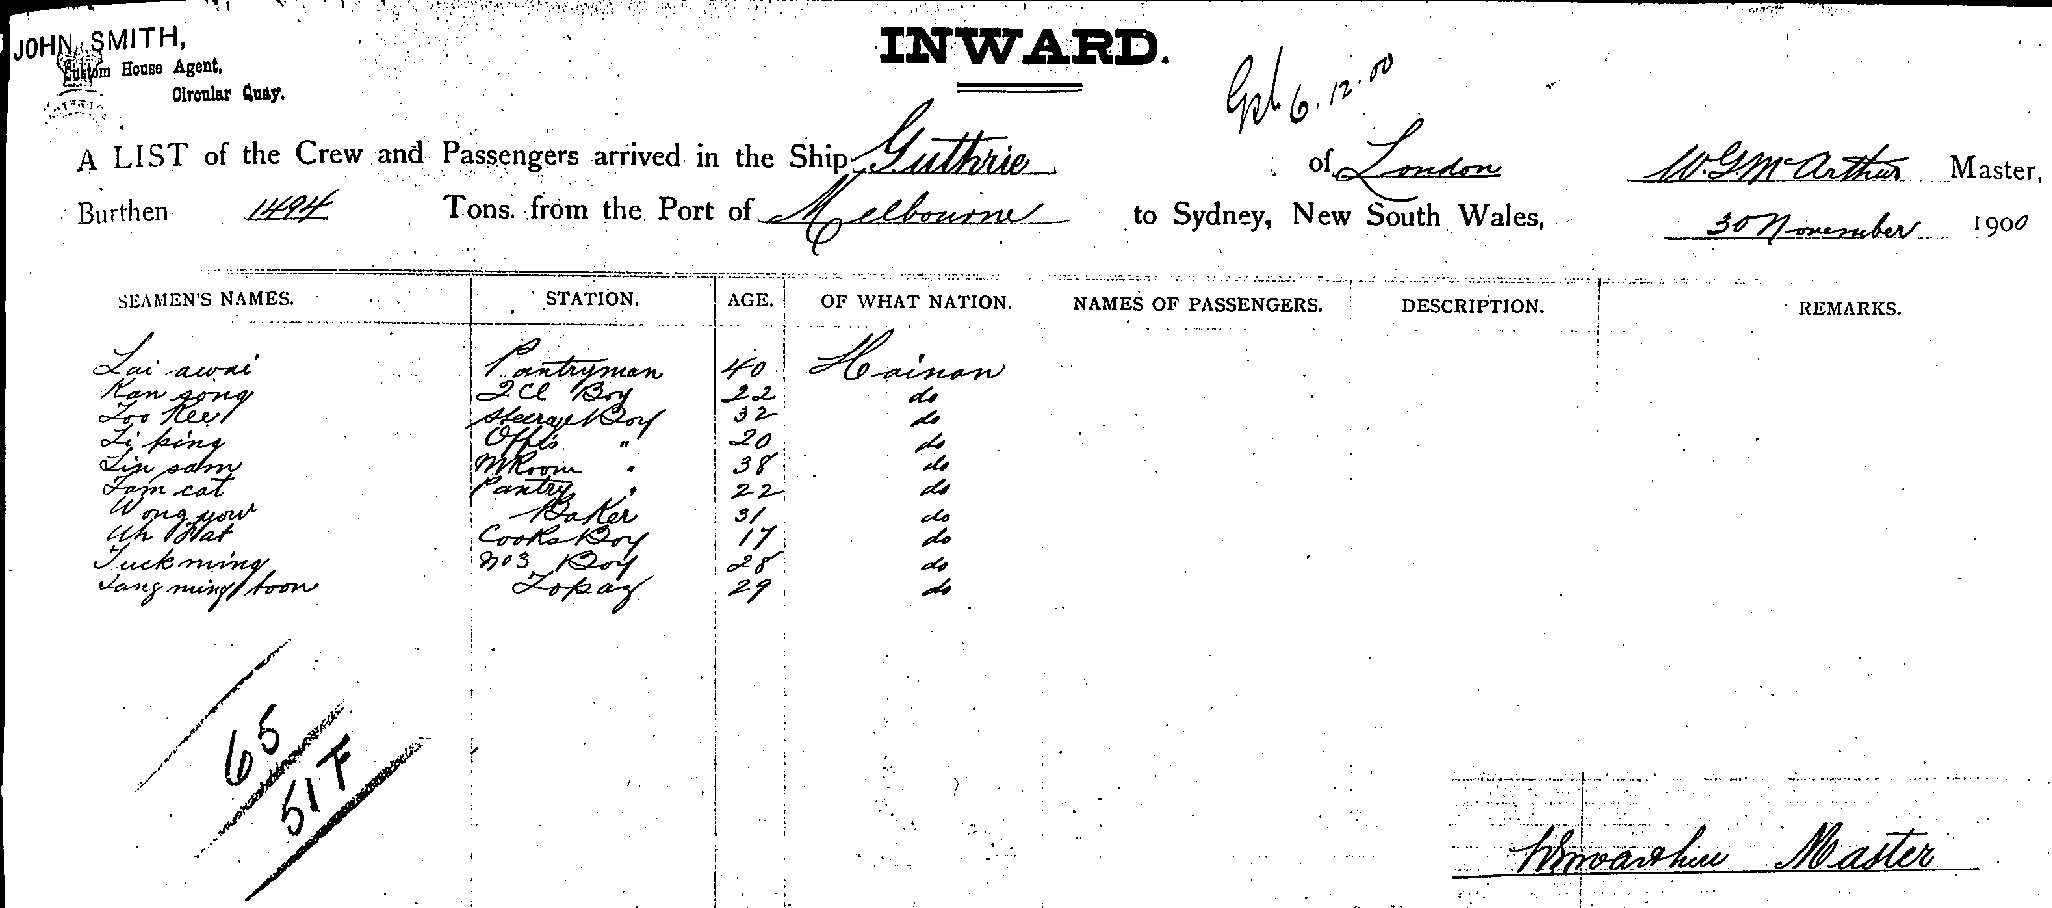 JOHN SMITH,
Custom House Agent,
Circular Quay.
INWARD.
6.12.00
A LIST of the Crew and Passengers arrived in the Ship Guthrie of London W.G McArthur Master,
Burthen 1494 Tons. from the Port of Melbourne to Sydney, New South Wales, 30 November 1900
SEAMEN'S NAMES. STATION. AGE. OF WHAT NATION. NAMES OF PASSENGERS. DESCRIPTION. REMARKS.
Lai awai Pantryman 40 Hainan
Kan gong 2 Cl Boy 22 do
Too Kee Steerage Boy 32 do
Li king Offrs " 20 do
Lin sam M Room " 38 do
Tam cat Pantry " 22 do
Wong yow Baker 31 do
Ah Hat Cooks Boy 17 do
Tuck ming No 3 Boy 28 do
Tang ming toon Topaz 29 do
65
51 F
Master